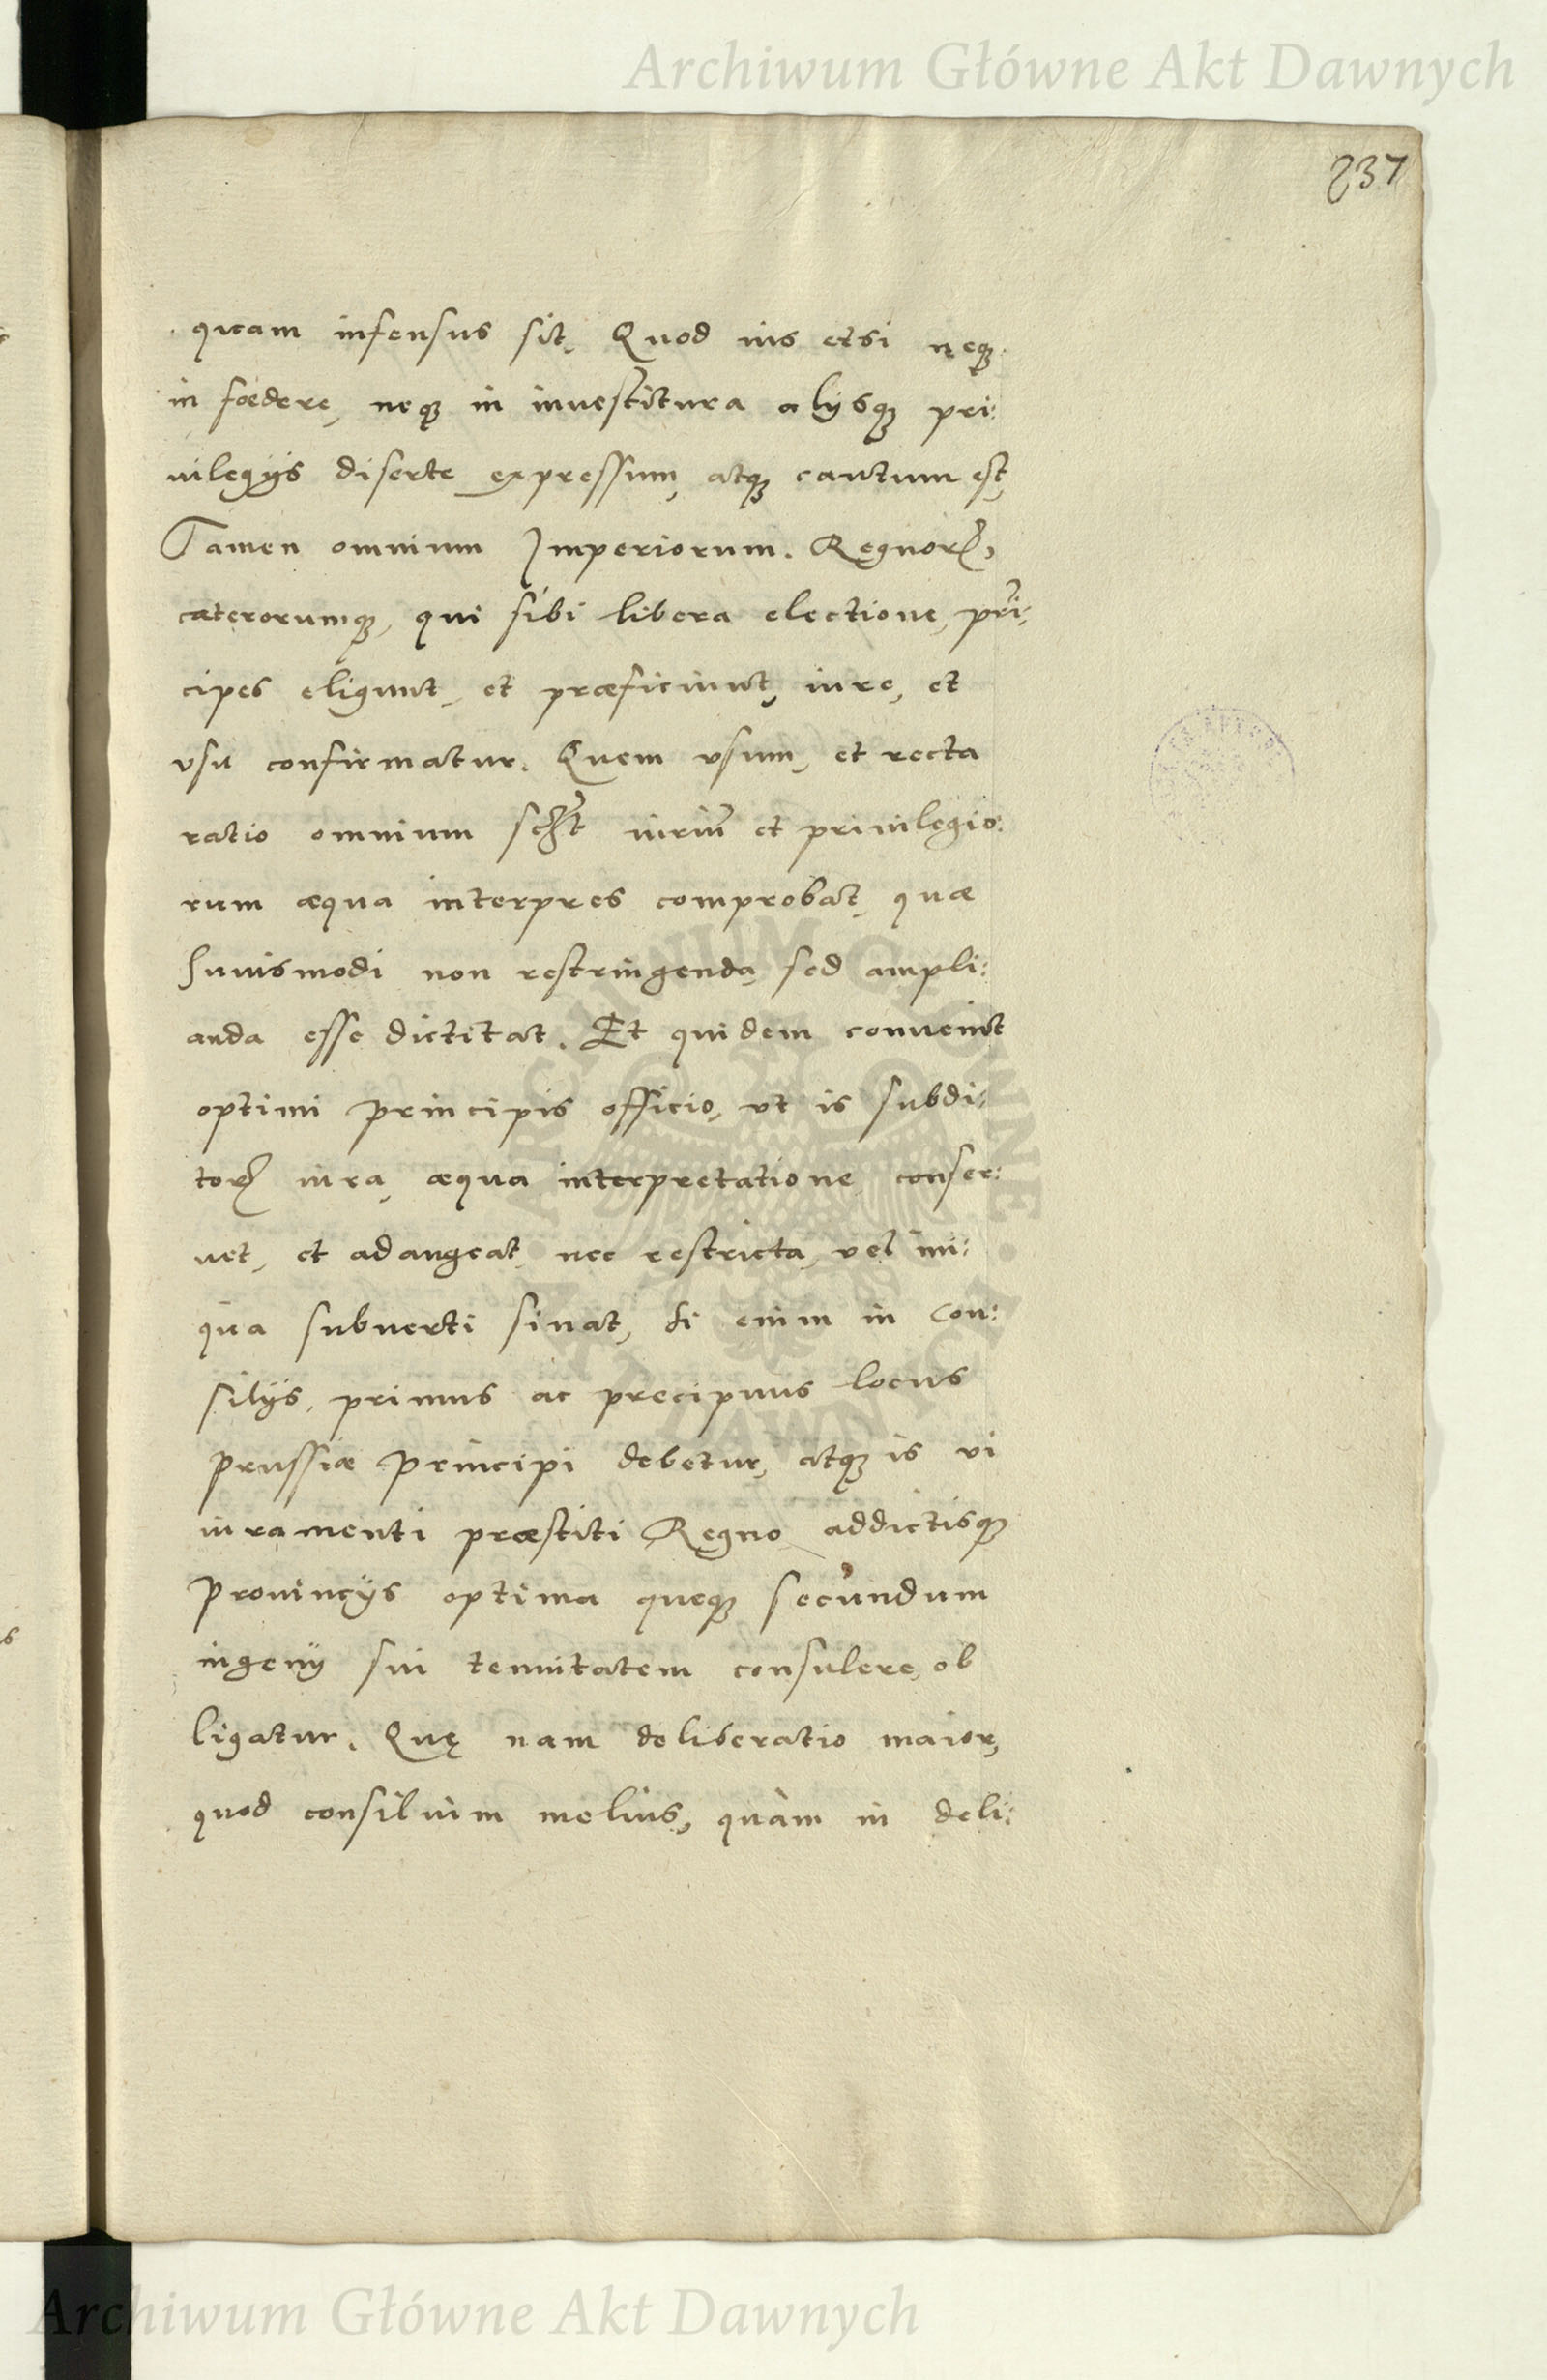 Archiwum Główne Akt Dawnych
237
quam infensus sit, Quod ius etsi neq3
in fœdere, neq3 in inuestitura alijsq3 pri:
uilegijs diserte expressum, atq3 cautum est,
Tamen omnium Imperiorum. Regnorꝝ,
cæterorumq3, qui sibi libera electione, prī:
cipes eligunt, et præficiunt, iure, et
vsu confirmatur. Quem vsum, et recta
ratio omnium iuriū et priuilegio:
rum æqua interpres comprobat, quæ
huiusmodi non restringenda, sed ampli:
anda esse dictitat. Et quidem conuenit
optimi principis officio, vt is subdi:
torꝝ iura, æqua interpretatione conser:
uet, et adaugeat, nec restricta, vel ini:
qua subuerti sinat, Si enim in Con:
silijs, primus ac precipuus locus
Prussiæ Principi debetur, atq3 is vi
iuramenti præstiti Regno addictisq3
Prouincijs optima queq3 secundum
ingenij sui tenuitatem consulere, ob
ligatur. Quę nam deliberatio maior,
quod consilium melius, quàm in deli:
ARCHIWUM GŁÓWNE AKT DAWNYCH
Archiwum Główne Akt Dawnych